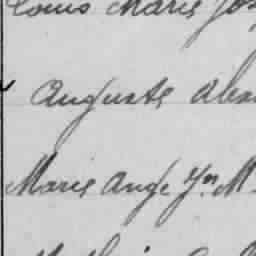 Louis Marie Jos
Auguste Alex
Marie Ange Yn M